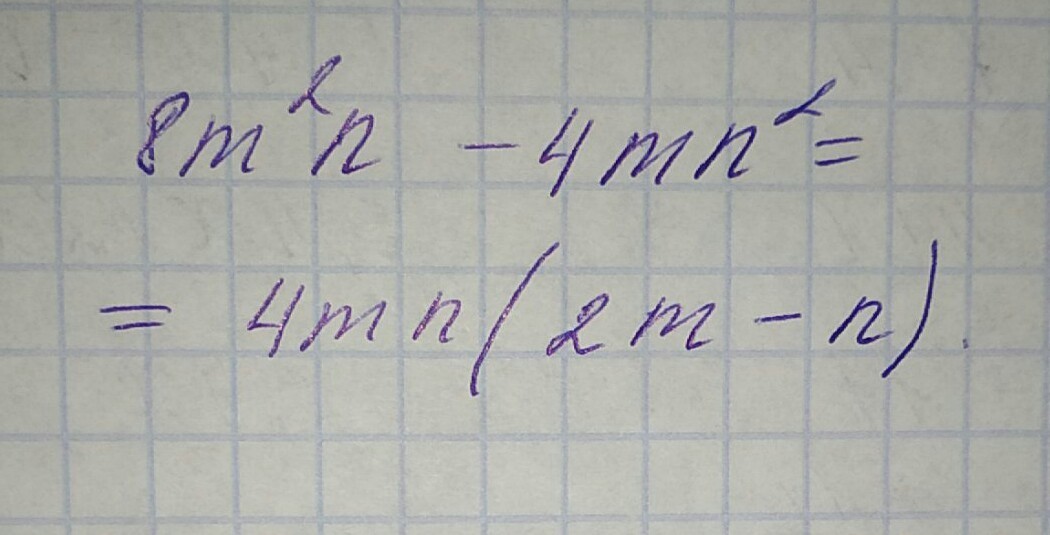 8m²n - 4mn² =
= 4mn(2m - n).